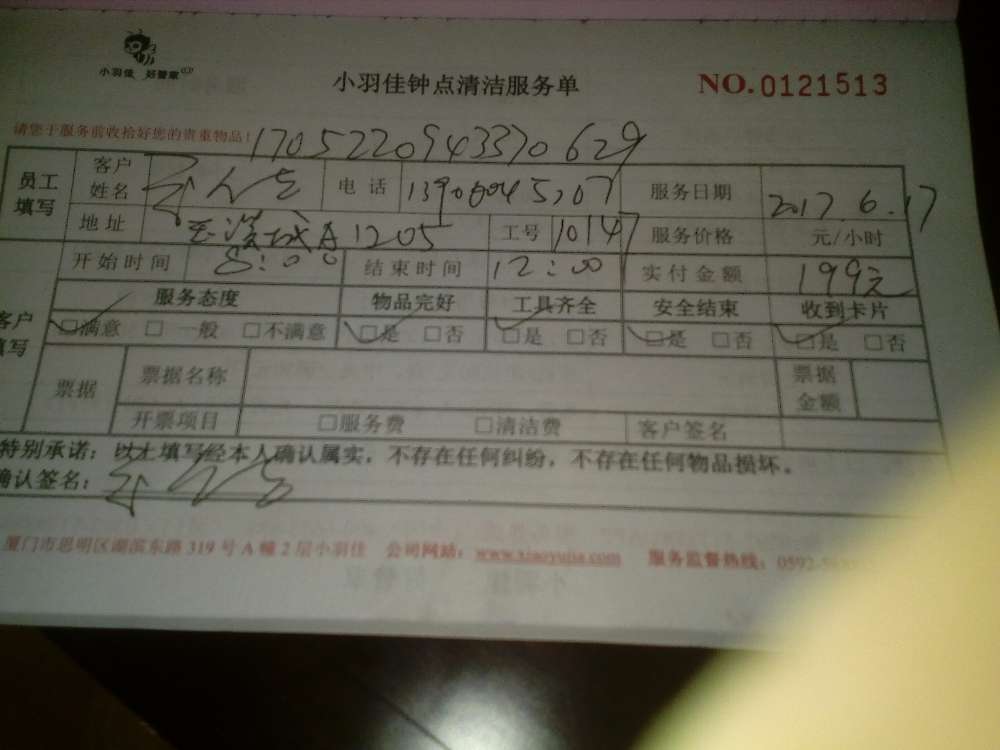 小羽佳 好管家
小羽佳钟点清洁服务单
NO.0121513
请您于服务前收拾好您的贵重物品!
1705220943370629
员工填写 客户姓名 电话 服务日期 2017.6.17
地址 A1205 工号 10147 服务价格 元/小时
开始时间 8:00 结束时间 12:00 实付金额 199元
客户填写 服务态度 物品完好 工具齐全 安全结束 收到卡片
□满意 □一般 □不满意 □是 □否 □是 □否 □是 □否 □是 □否
票据 票据名称 票据金额
开票项目 □服务费 □清洁费 客户签名
特别承诺：以上填写经本人确认属实，不存在任何纠纷，不存在任何物品损坏。
确认签名：
厦门市思明区湖滨东路319号A幢2层小羽佳 公司网站： 服务监督热线：0592-